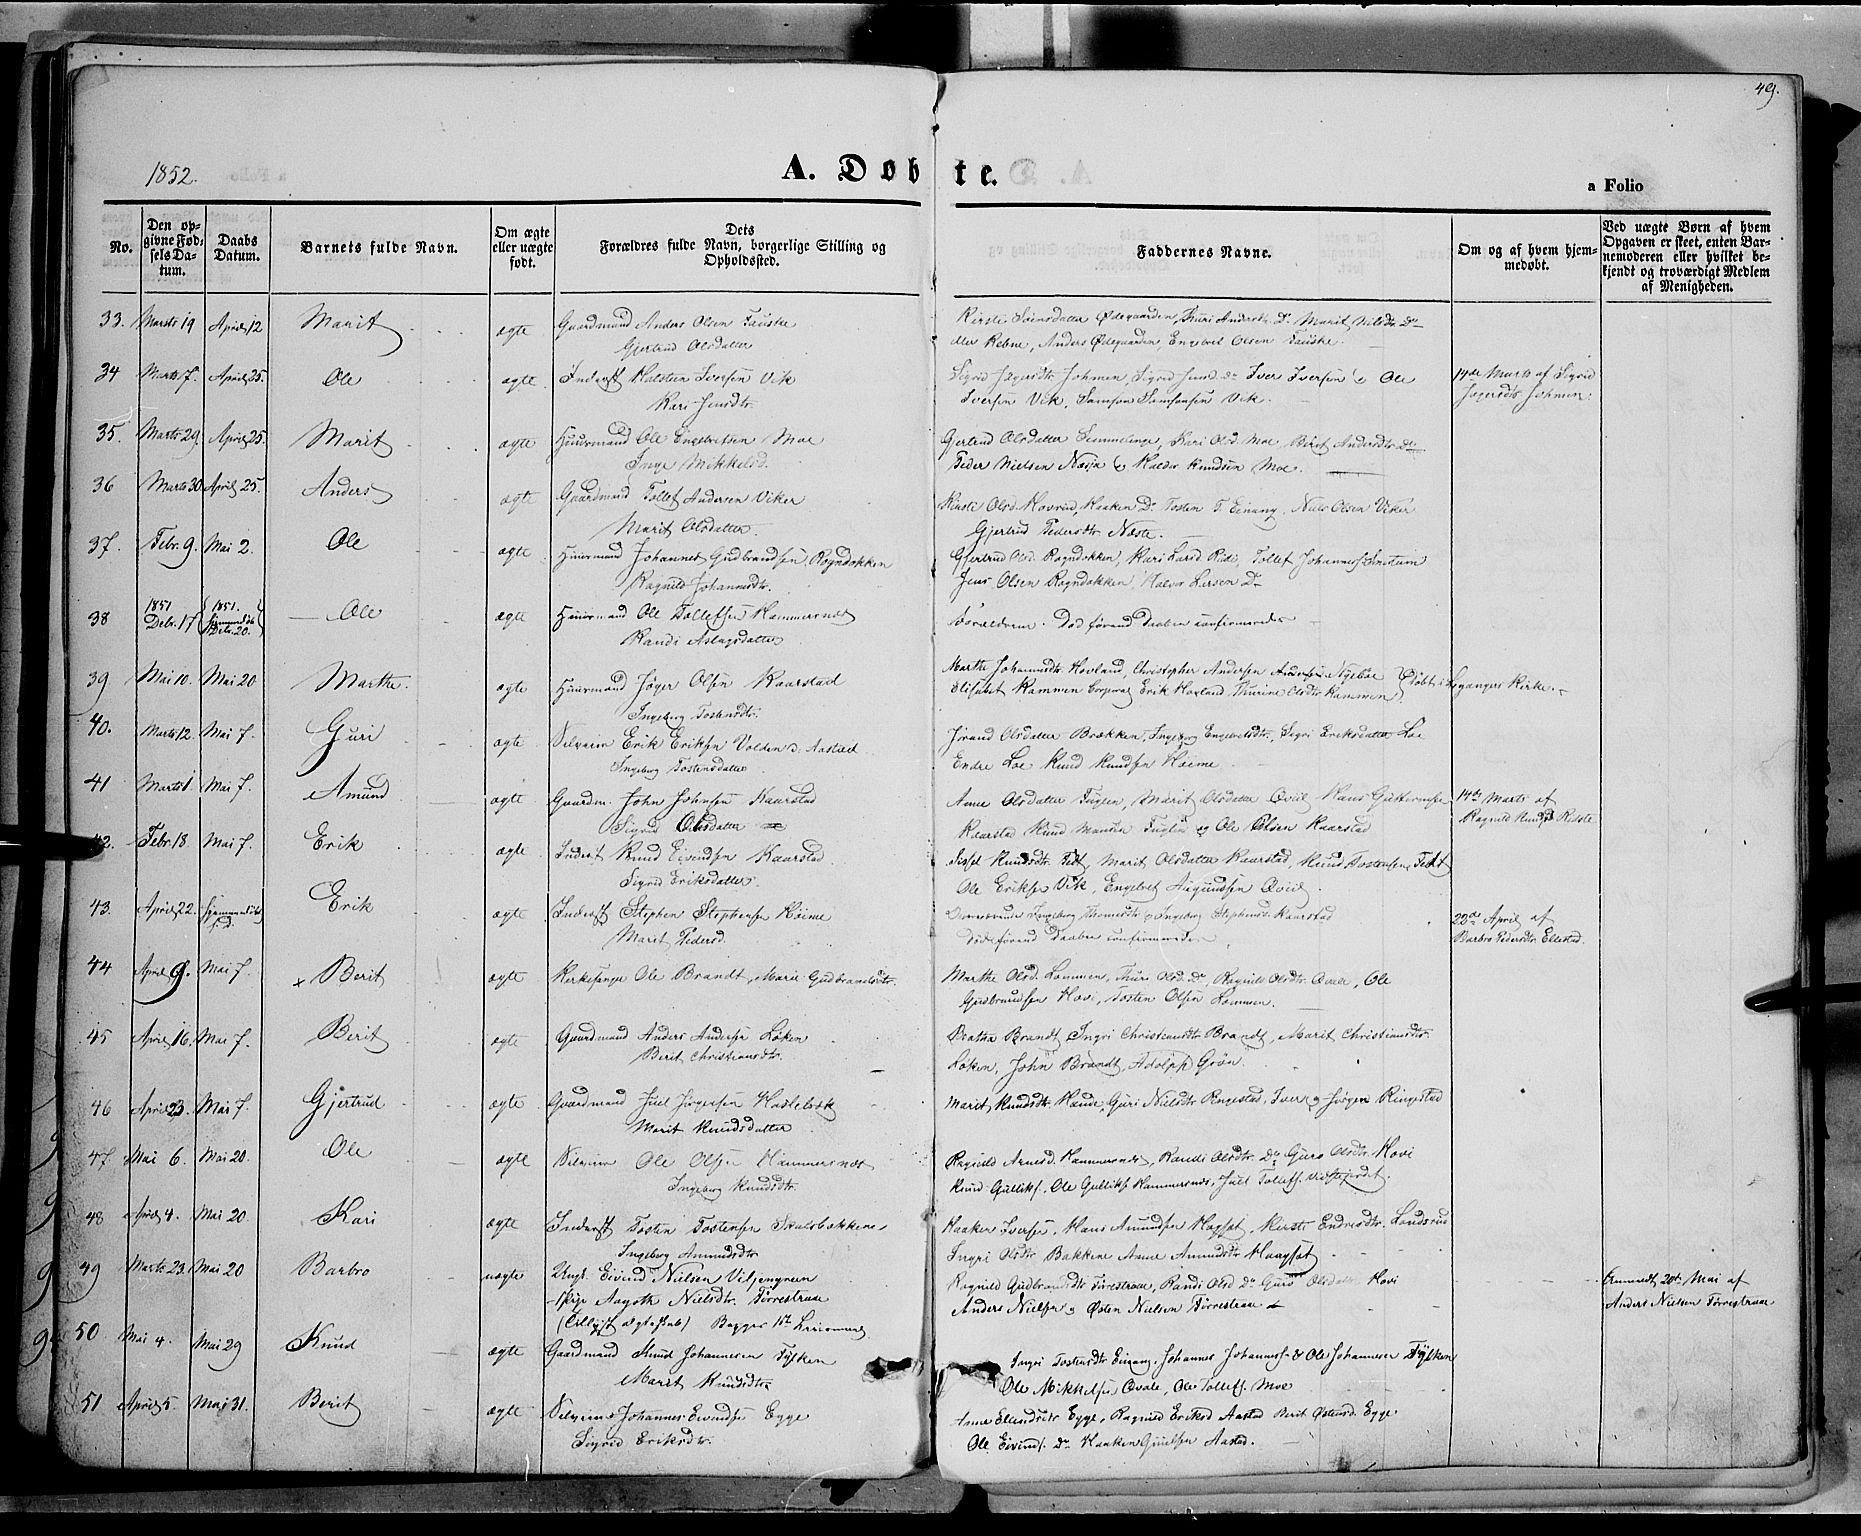 49.
1852.
A. Døbte.
a Folio
No.
Den opgivne Fødsels Datum.
Daabs Datum.
Barnets fulde Navn.
Om ægte eller uægte født.
Dets Forældres fulde Navn, borgerlige Stilling og Opholdssted.
Faddernes Navne.
Om og af hvem hjemmedøbt.
Ved uægte Børn af hvem Opgaven er skeet, enten Barnemoderen eller hvilket bekjendt og troværdigt Medlem af Menigheden.
33. Marts 19 April 12 Marit ægte Gaardmand Anders Olsen Fauske
Gjertrud Olsdatter
Kirsti Odegaarden, Marit
Anders Ødegaarden, Engebret Olsen Fauske.
34 Marts 7. April 25. Ole ægte Inderst Halsten Iversen Vik
Kari Jensdtr.
Iver Iversen & Ole
Iversen Vik, Samson Samsonsen Vik.
14de Marts af Sigrid
35. Marts 29. April 25. Marit ægte Huusmand Ole Engebretsen Moe
Inge Mikkelsd.
Gjertrud Olsdatter Semmelenge, Kari Olsd. Moe, Berit Andersdtr. Do
Peder Nielsen Næsja & Halvor Knudsen Moe.
36 Marts 30. April 25. Anders ægte Gaardmand Tollef Andersen Viker
Marit Olsdatter.
Kirsti Olsd. Hovrud, Haaken Do Tosten T. Einang, Niels Olsen Viker
Gjertrud Pedersdtr Næste.
37. Febr. 9. Mai 2. Ole ægte Huusmand Johannes Gudbrandsen Rogndokken
Ragnild Johannesdtr.
Gjertrud Olsd. Rogndokken, Kari Larsd. Tollef Johannes
Jens Olsen Rogndokken, Halvor Larsen Do
38 1851 Debr. 17 1851. Debr. 20. Ole ægte Huusmand Ole Tollefsen Hammersnes
Randi Aslagsdatter
Forældrene. Død førend Daaben confirmeredes
39 Mai 10. Mai 20 Marthe. ægte Huusmand Jøger Olsen Kaarstad
Ingeberg Tostensdtr.
Marthe Johannesdtr Hovland, Christopher Andersen
Elisabet Rammen Erik Hovland, Thurine Olsdtr Rammen Døbt i Kirke.
40. Marts 12. Mai 7. Guri ægte Selveier Erik Eriksen Volden Aastad
Ingeborg Tostensdatter
Jørand Olsdatter Brækken, Ingeborg Engebretsdtr, Sigri Eriksdatter Loe
Endre Loe Knud Knudsen Høime
41 Marts 1. Mai 7. Amund ægte Gaardm. John Johnsen Kaarstad
Sigrid Olsdatter
Anne Olsdatter Fuglen, Marit Olsdatter Qvil, Hans
Kaarstad Knud Fuglen og Ole Olsen Kaarstad
14de Marts af
Ragnild Knudsd
42. Febr. 18 Mai 7. Erik ægte Inderst Knud Eivindsen Kaarstad
Sigrid Eriksdatter.
Sissel Knudsdtr. Marit Olsdatter Kaarstad, Knud Tostensen
Ole Eriksen Vik, Engebret Augundsen Qvil.
43. April 22. Erik ægte Inderst Stephen Stephensen Høime
Marit Pedersd.
Ingeborg Stephensd. Kaarstad
Død førend Daaben confirmeredes
22de April af
Barbro Pedersdtr. Ellestad.
44 April 9. Mai 7. × Berit ægte Kirkesanger Ole Brandt, Marie Gudbrandsdtr.
Marthe Olsd. Lommen, Thuri Olsd. Do, Ragnild Olsdtr. Qvale, Ole
Gudbrandsen Hovi, Tosten Olsen Lommen.
45 April 16. Mai 7. Berit ægte Gaardmand Anders Andersen Løken
Berit Christiansdtr.
Beatha Brandt, Ingri Christiansdtr Brandt, Marit Christiansdtr.
Løken, John Brandt, Adolph Grøn.
46 April 23. Mai 7. Gjertrud ægte Gaardmand Juel Jørgensen Haslebrek
Marit Knudsdatter
Marit Knudsdtr. Hande, Guri Nielsdtr Ringestad, Iver og Jørgen Ringestad
47. Mai 6. Mai 20. Ole ægte Selveier Ole Olsen Hammersnes
Ingeborg Knudsdtr.
Ragnild Arnesd. Hammersnes, Randi Olsdtr. Do Guro Olsdtr. Hovi
Knud Gulliks., Ole Gulliks. Hammersnes, Juel Tollefs.
48 April 4. Mai 20. Kari ægte Inderst Tosten Tostensen Skalsbakkene
Ingeborg Amundsdtr
Haaken Iversen, Hans Amundsen Hagset, Kirsti Endresdtr. Landsrud
Ingri Olsdtr Bakkene Anne Amundsdtr Haagset
49 Marts 23. Mai 20 Barbro uægte Ungk. Eivind Nielsen Viljengreen
Pige Aagoth Nielsdtr. Tørrestraae
Ragnild Gudbrandsdtr Tørrestraae, Randi Olsd. Do Guro Olsdatter Hovi
Anders Nielsen og Østen Nielsen Tørrestraae
Anmeldt 20de Mai af
Anders Nielsen Tørrestraae
50 Mai 4. Mai 29 Knud ægte Gaardmand Knud Johannesen Fylken
Marit Knudsdtr
Ingri Tostensdtr Einang, Johannes Johannes. & Ole Johannesen Fylken
Ole Mikkelsen Qvale, Ole Tollefs. Moe
51 April 5. Mai 31. Berit ægte Selveier Johannes Eivindsen Egge
Sigrid Eriksdtr.
Anne Ellendsdtr Egge, Ragnild Eriksd Aastad Berit Østensd. Egge
Ole Eivinds. Do Haaken Aastad.